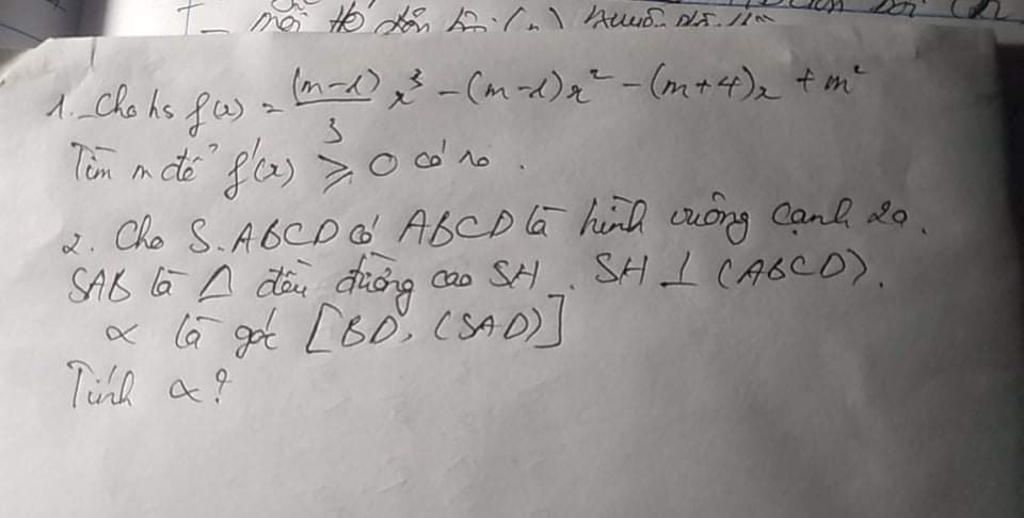 mỗi
1. Cho hs f(x) = (m-1)/3 x³ - (m-1)x² - (m+4)x + m²
Tìm m để f'(x) ≥ 0 có no.
2. Cho S.ABCD có ABCD là hình vuông cạnh 2a.
SAB là Δ đều đường cao SH. SH ⊥ (ABCD).
α là góc [BD, (SAD)]
Tính α?